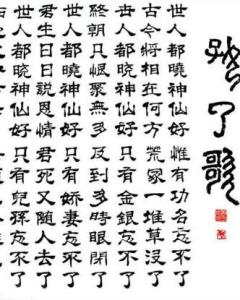 好了歌
世人都曉神仙好惟有功名忘不了
古今將相在何方荒冢一堆草没了
世人都曉神仙好只有金銀忘不了
終朝只恨聚無多及到多時眼閉了
世人都曉神仙好只有嬌妻忘不了
君生日日説恩情君死又隨人去了
世人都曉神仙好只有兒孫忘不了